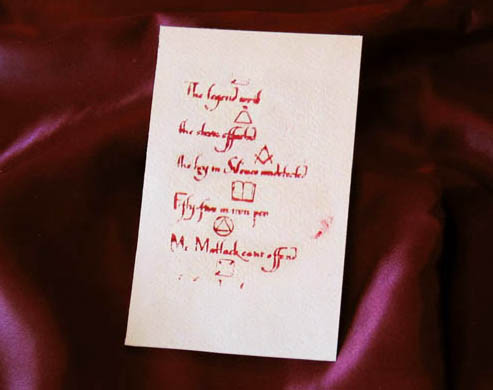 The legend writ
the stain effected
the key in Silence undetected
Fifty-five in iron pen
Mr Matlack cant offend